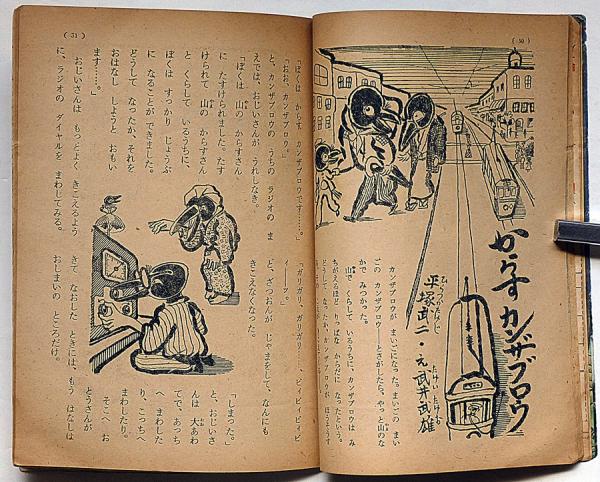 (30)
からす カンザブロウ
ひらつかたけじ たけい たけお
平塚武二・え 武井武雄
カンザブロウが まいごになった。まいごの まい
ごの カンザブロウ――と さがしたら、やっと 山のな
かで みつかった。
山で くらして いるうちに、カンザブロウは み
ちがえるほど、りっぱな からだに なったという。
どうして なったか、カンザブロウが ほうそうす
(31)
「ぼくは からす カンザブロウです……。」
「おお、カンザブロウ。」
と、カンザブロウの うちの ラジオの ま
えでは、おじいさんが うれしなき。
「ぼくは 山の からすさん
に たすけられました。たす
けられて 山の からすさん
と くらして いるうちに、
ぼくは すっかり じょうぶ
に なることが できました。
どうして なったか、それを
おはなし しようと おもい
ます……。」
おじいさんは もっとよく きこえるよう
に、ラジオの ダイヤルを まわしてみる。
「ガリガリ、ガリガリ……、ピィピィピィピ
ィーッ。」
と、ざつおんが じゃまをして、なんにも
きこえなくなった。
「しまった。」
と、おじいさ
んは 大あわ
てで、あっち
へ まわした
り、こっちへ
まわしたり。
そこへ お
とうさんが
きて なおした ときには、もう はなしは
おしまいの ところだけ。